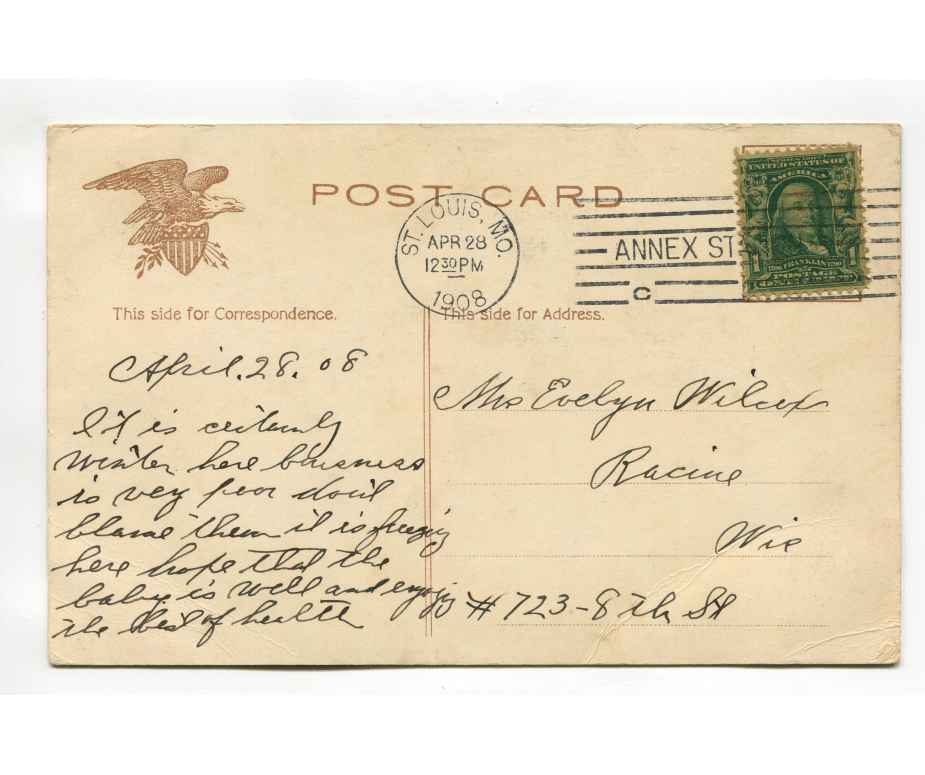 POST CARD
ST. LOUIS, MO.
APR 28
12 30 PM
1908
ANNEX ST
C
UNITED STATES OF
AMERICA
FRANKLIN
POSTAGE
This side for Correspondence.
This side for Address.
April. 28. 08
It is certainly
winter here buisness
is very poor don't
blame them it is freezing
here hope that the
baby is well and enjoying
the best of health
Mrs Evelyn Wilcox
Racine
Wis
# 723-8th St